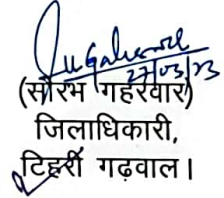 27/03/23
(सौरभ गहरवार)
जिलाधिकारी,
टिहरी गढ़वाल।